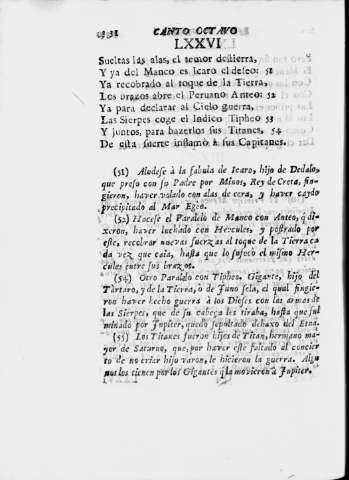 CANTO OCTAVO
LXXVI
Sueltas las alas, el temor destierra,
Y ya del Manco es Icaro el deseo: 51
Ya recobrado al toque de la Tierra,
Los brazos abre el Peruano Anteo: 52
Ya para declarar al Cielo guerra,
Las Sierpes coge el Indico Tipheo 53
Y juntos, para hazerlos sus Titanes, 54
De esta suerte inflamò à sus Capitanes.
(51) Aludese à la fabula de Icaro, hijo de Dedalo,
que preso con su Padre por Minos, Rey de Creta, fin-
gieron, haver volado con alas de cera, y haver caydo
precipitado al Mar Egeo.
(52) Hacese el Paralelo de Manco con Anteo, q̃ di-
xeron, haver luchado con Hercules, y postrado por
este, recobrar nuevas fuerzas al toque de la Tierra ca
da vez que caìa, hasta que lo sufocò el mismo Her-
cules entre sus brazos.
(54) Otro Paralelo con Tipheo, Gigante, hijo del
Tartaro, y de la Tierra, ò de Juno sola, el qual fingie-
ron haver hecho guerra à los Dioses con las armas de
las Sierpes, que de su cabeza les tiraba, hasta que ful
minado por Jupiter, quedò sepultado debaxo del Etna.
(55) Los Titanes fueron hijos de Titan, hermano ma-
yor de Saturno, que, por haver este faltado al concier
to de no criar hijo varon, le hicieron la guerra. Algu
nos los tienen por los Gigantes q̃ la movieron à Jupiter.